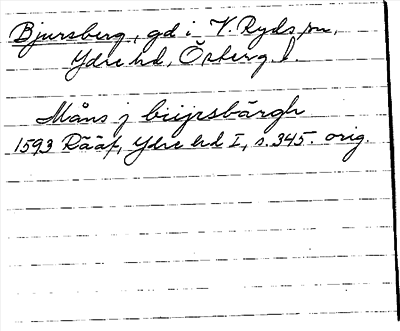 Bjursberg, gd i V. Ryds sn,
Ydre hd, Österg. l.
Måns j biijrsbärgh
1593 Rääf, Ydre hd I, s. 345. orig.